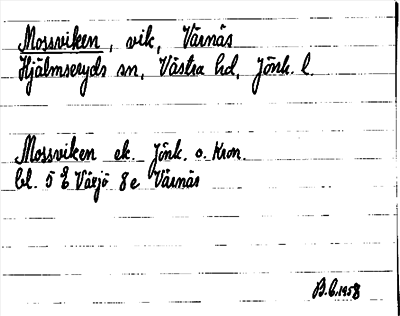 Mossviken, vik, Värnäs
Hjälmseryds sn, Västra hd, Jönk. l.
Mossviken ek. Jönk. o. Kron.
bl. 5 E Växjö 8 e Värnäs
B.C. 1958